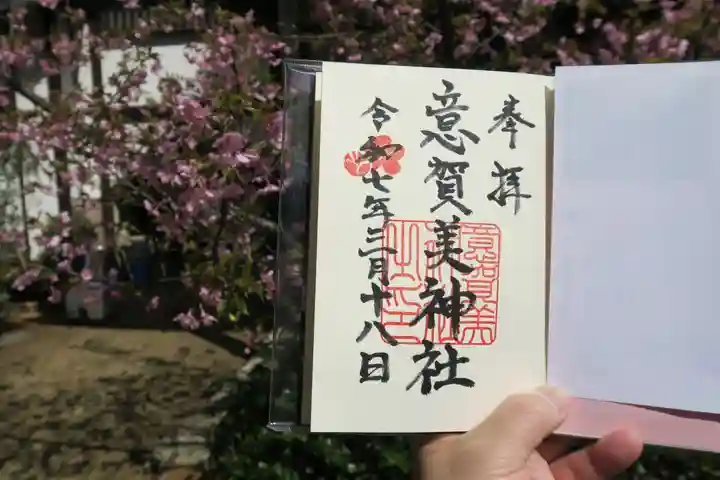 奉拝
意賀美神社
令和七年三月十八日
意賀美
神社
之印